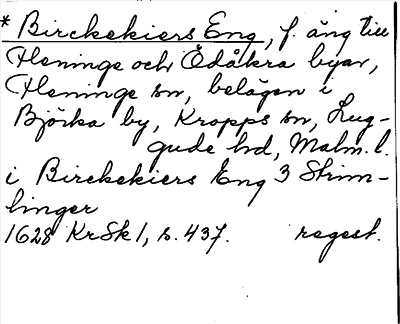 * Birckekiers Eng, f. äng till
Fleninge och Ödåkra byar,
Fleninge sn, belägen i
Björka by, Kropps sn, Lug-
gude hd, Malm. l.
i Birckekiers Eng 3 Strim-
linger
1628 KrSk 1, s. 437. regest.